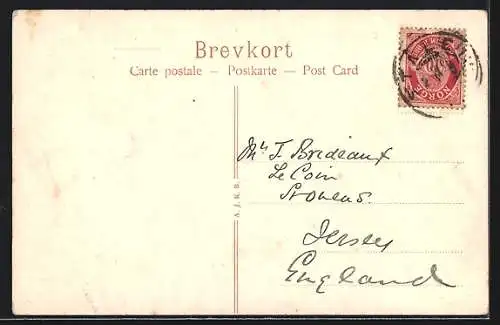 Brevkort
Carte postale — Postkarte — Post Card
NORGE
A. J. K. B.
Mrs F. Brideaux
Le Coin
St Owens.
Jersey
England